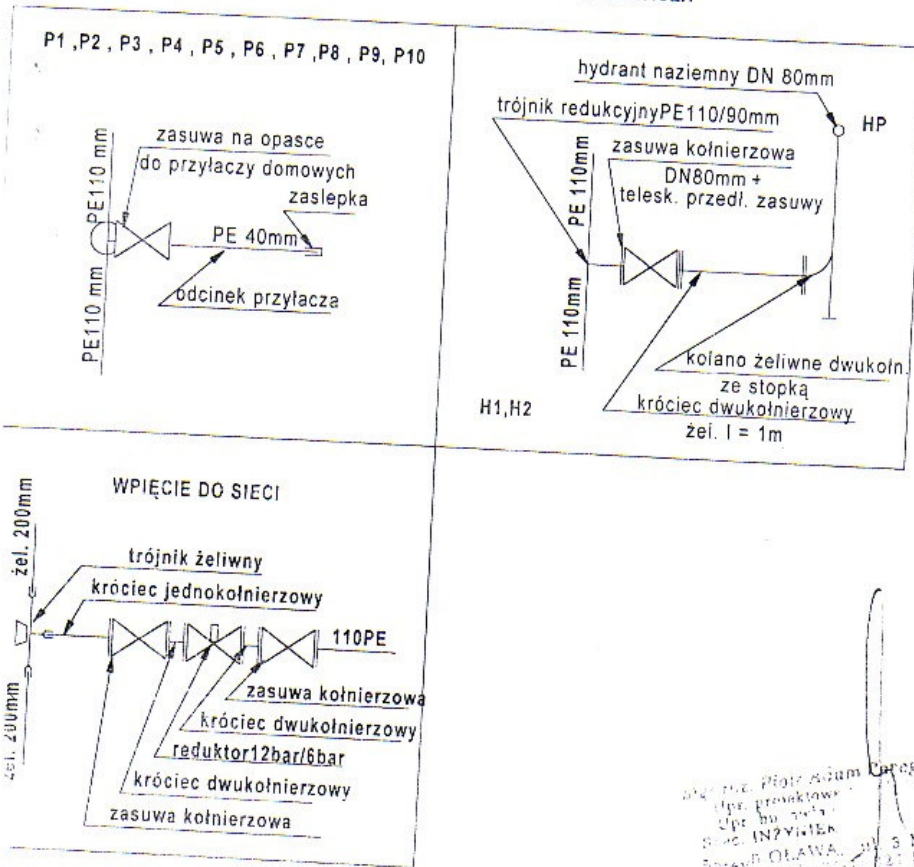 P1 ,P2 , P3 , P4 , P5 , P6 , P7 ,P8 , P9, P10
zasuwa na opasce
do przyłaczy domowych
zaslepka
PE110 mm
PE 40mm
PE110 mm
odcinek przyłacza
hydrant naziemny DN 80mm
HP
trójnik redukcyjnyPE110/90mm
zasuwa kołnierzowa
DN80mm +
telesk. przedł. zasuwy
PE 110mm
PE 110mm
kolano żeliwne dwukołn.
ze stopką
króciec dwukołnierzowy
żel. l = 1m
H1,H2
WPIĘCIE DO SIECI
żel. 200mm
trójnik żeliwny
króciec jednokołnierzowy
110PE
żel. 200mm
zasuwa kołnierzowa
króciec dwukołnierzowy
reduktor12bar/6bar
króciec dwukołnierzowy
zasuwa kołnierzowa
Piotr Adam
Upr.
Upr.
OŁAWA